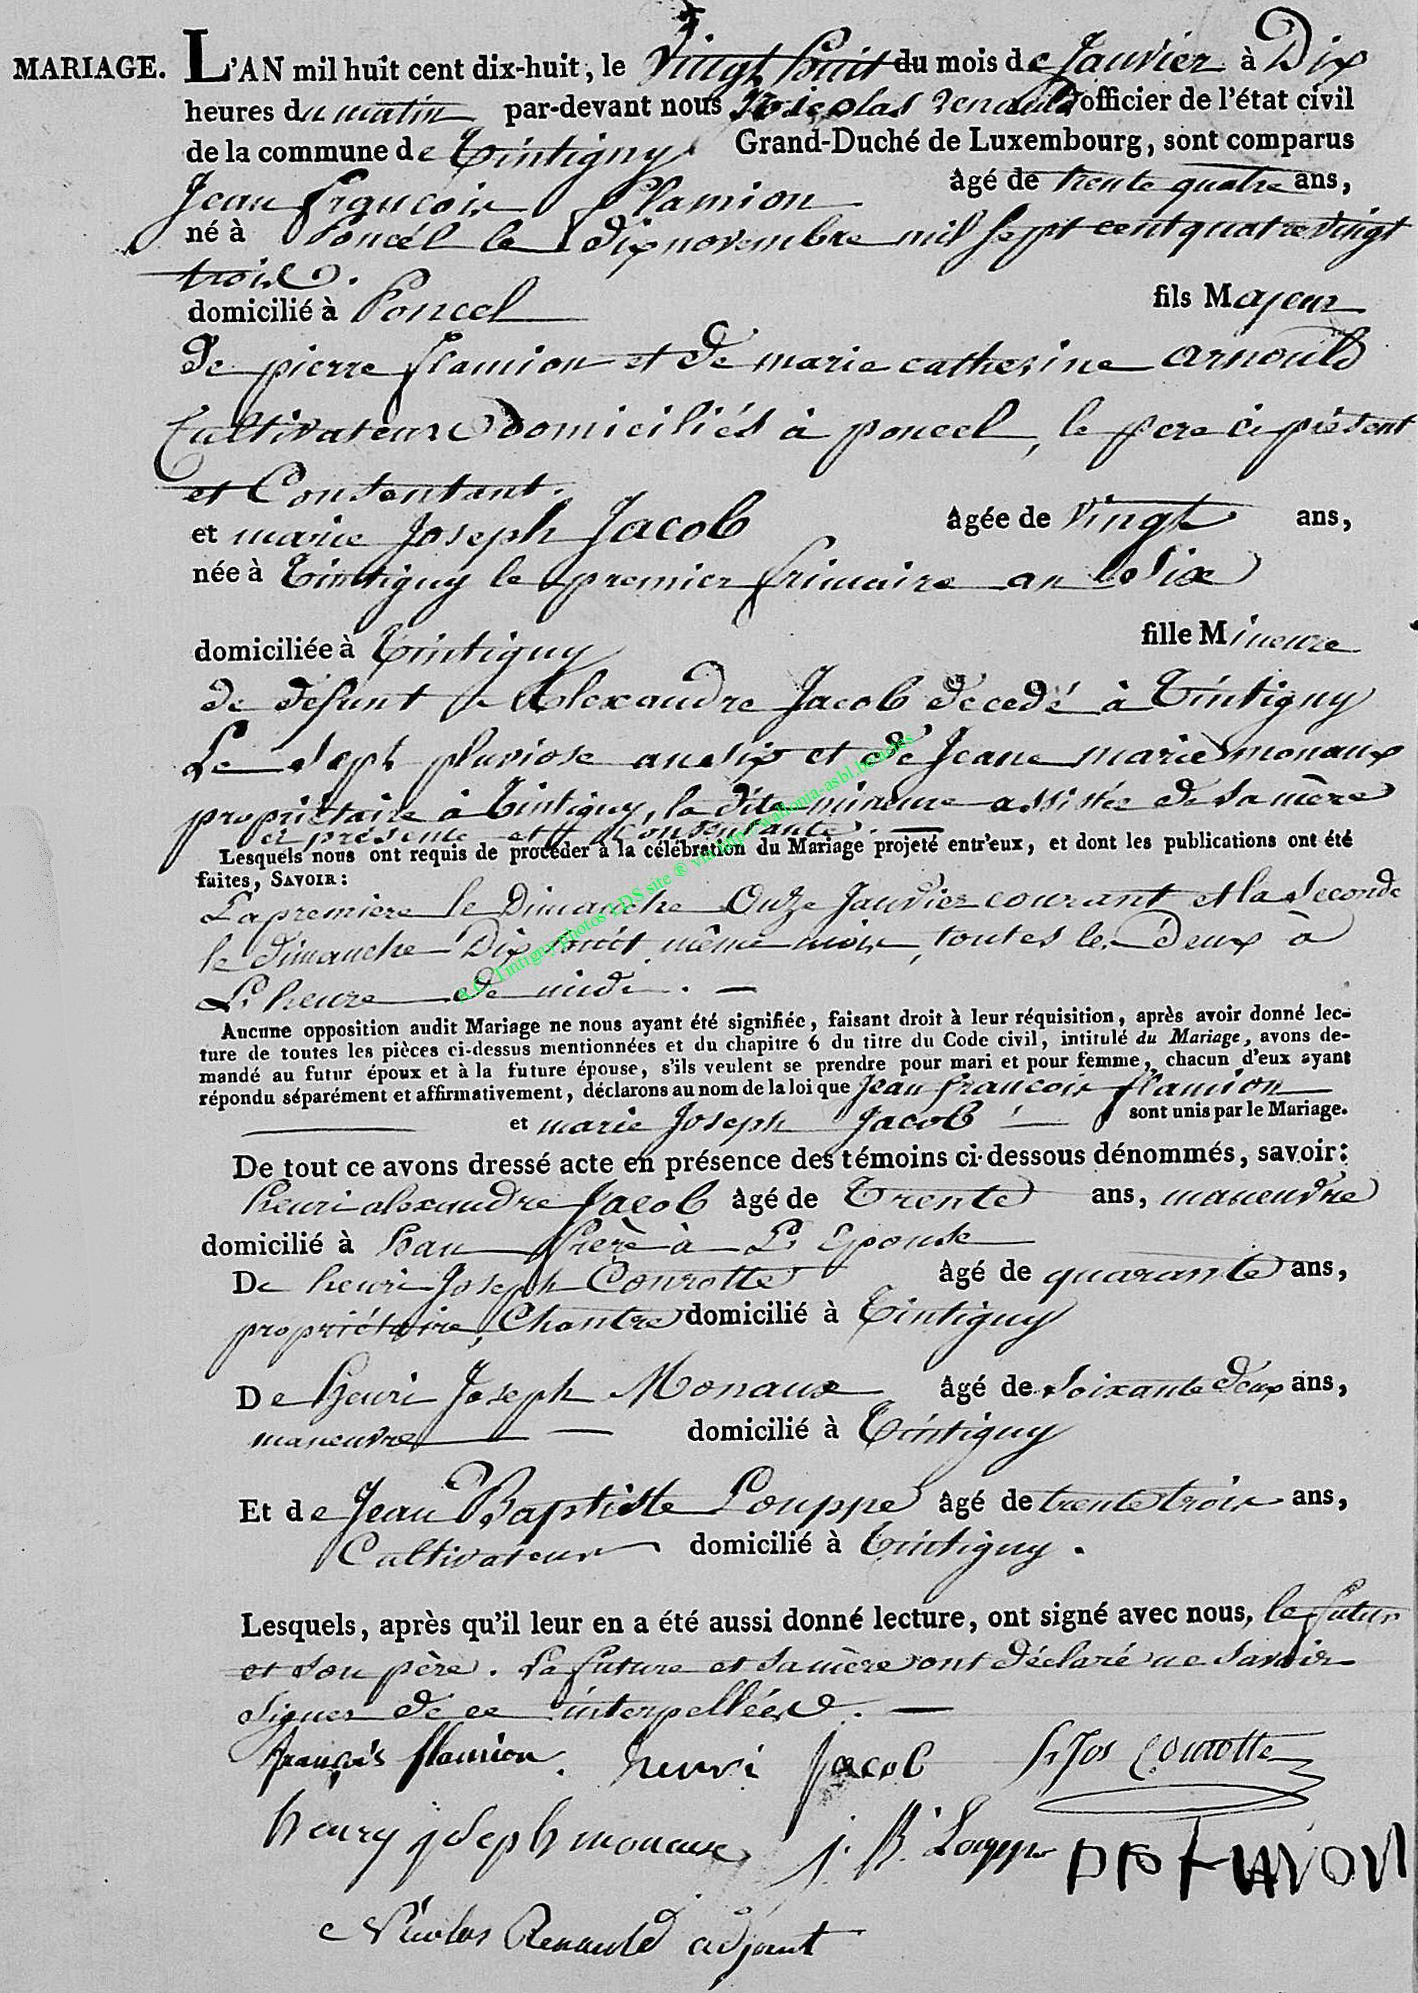 MARIAGE. L'AN mil huit cent dix-huit, le vingt huit du mois de Janvier à Dix
heures du matin par-devant nous Nicolas Renauld officier de l'état civil
de la commune de Tintigny Grand-Duché de Luxembourg, sont comparus
Jean françois flamion âgé de trente quatre ans,
né à Poncél le dix novembre mil sept cent quatre vingt
trois.
domicilié à Poncel fils Majeur
De pierre flamion et de marie catherine arnould
Cultivateurs domiciliés à poncel, le pere ci présent
et Consentant.
et marie Joseph Jacob âgée de vingt ans,
née à Tintigny le premier frimaire an six
domiciliée à Tintigny fille Mineure
de défunt Alexandre Jacob décedé à Tintigny
Le sept pluviose an dix et de Jeane marie monaux
propriétaire à Tintigny, la dite mineure assistée de sa mère
ci présente et consentante.
Lesquels nous ont requis de procéder à la célébration du Mariage projeté entr'eux, et dont les publications ont été
faites, SAVOIR:
La premiere le Dimanche Onze Janvier courant et la seconde
le dimanche Dix huit même mois, toutes les Deux à
L'heure de midi.
R.C. Tintigny photos LDS site ® via http://wallonia-asbl.be
Aucune opposition audit Mariage ne nous ayant été signifiée, faisant droit à leur réquisition, après avoir donné lec-
ture de toutes les pièces ci-dessus mentionnées et du chapitre 6 du titre du Code civil, intitulé du Mariage, avons de-
mandé au futur époux et à la future épouse, s'ils veulent se prendre pour mari et pour femme, chacun d'eux ayant
répondu séparément et affirmativement, déclarons au nom de la loi que Jean françois flamion
et marie Joseph Jacob sont unis par le Mariage.
De tout ce avons dressé acte en présence des témoins ci-dessous dénommés, savoir:
henri alexandre Jacob âgé de Trente ans, maneuvre
domicilié à han frère à L'Epouse
De henri Joseph Courotte âgé de quarante ans,
propriétaire, Chantre domicilié à Tintigny
De Henri Joseph Monaux âgé de soixante deux ans,
maneuvre domicilié à Tintigny
Et de Jean Baptiste Louppe âgé de trente trois ans,
Cultivateur domicilié à Tintigny.
Lesquels, après qu'il leur en a été aussi donné lecture, ont signé avec nous, le futur
et son père. La future et sa mère ont déclaré ne savoir
signer de ce interpellées.
françois flamion. henri Jacob h Jos Courotte
henry joseph monaux j. B. Louppe
Nicolas Renauld adjoint